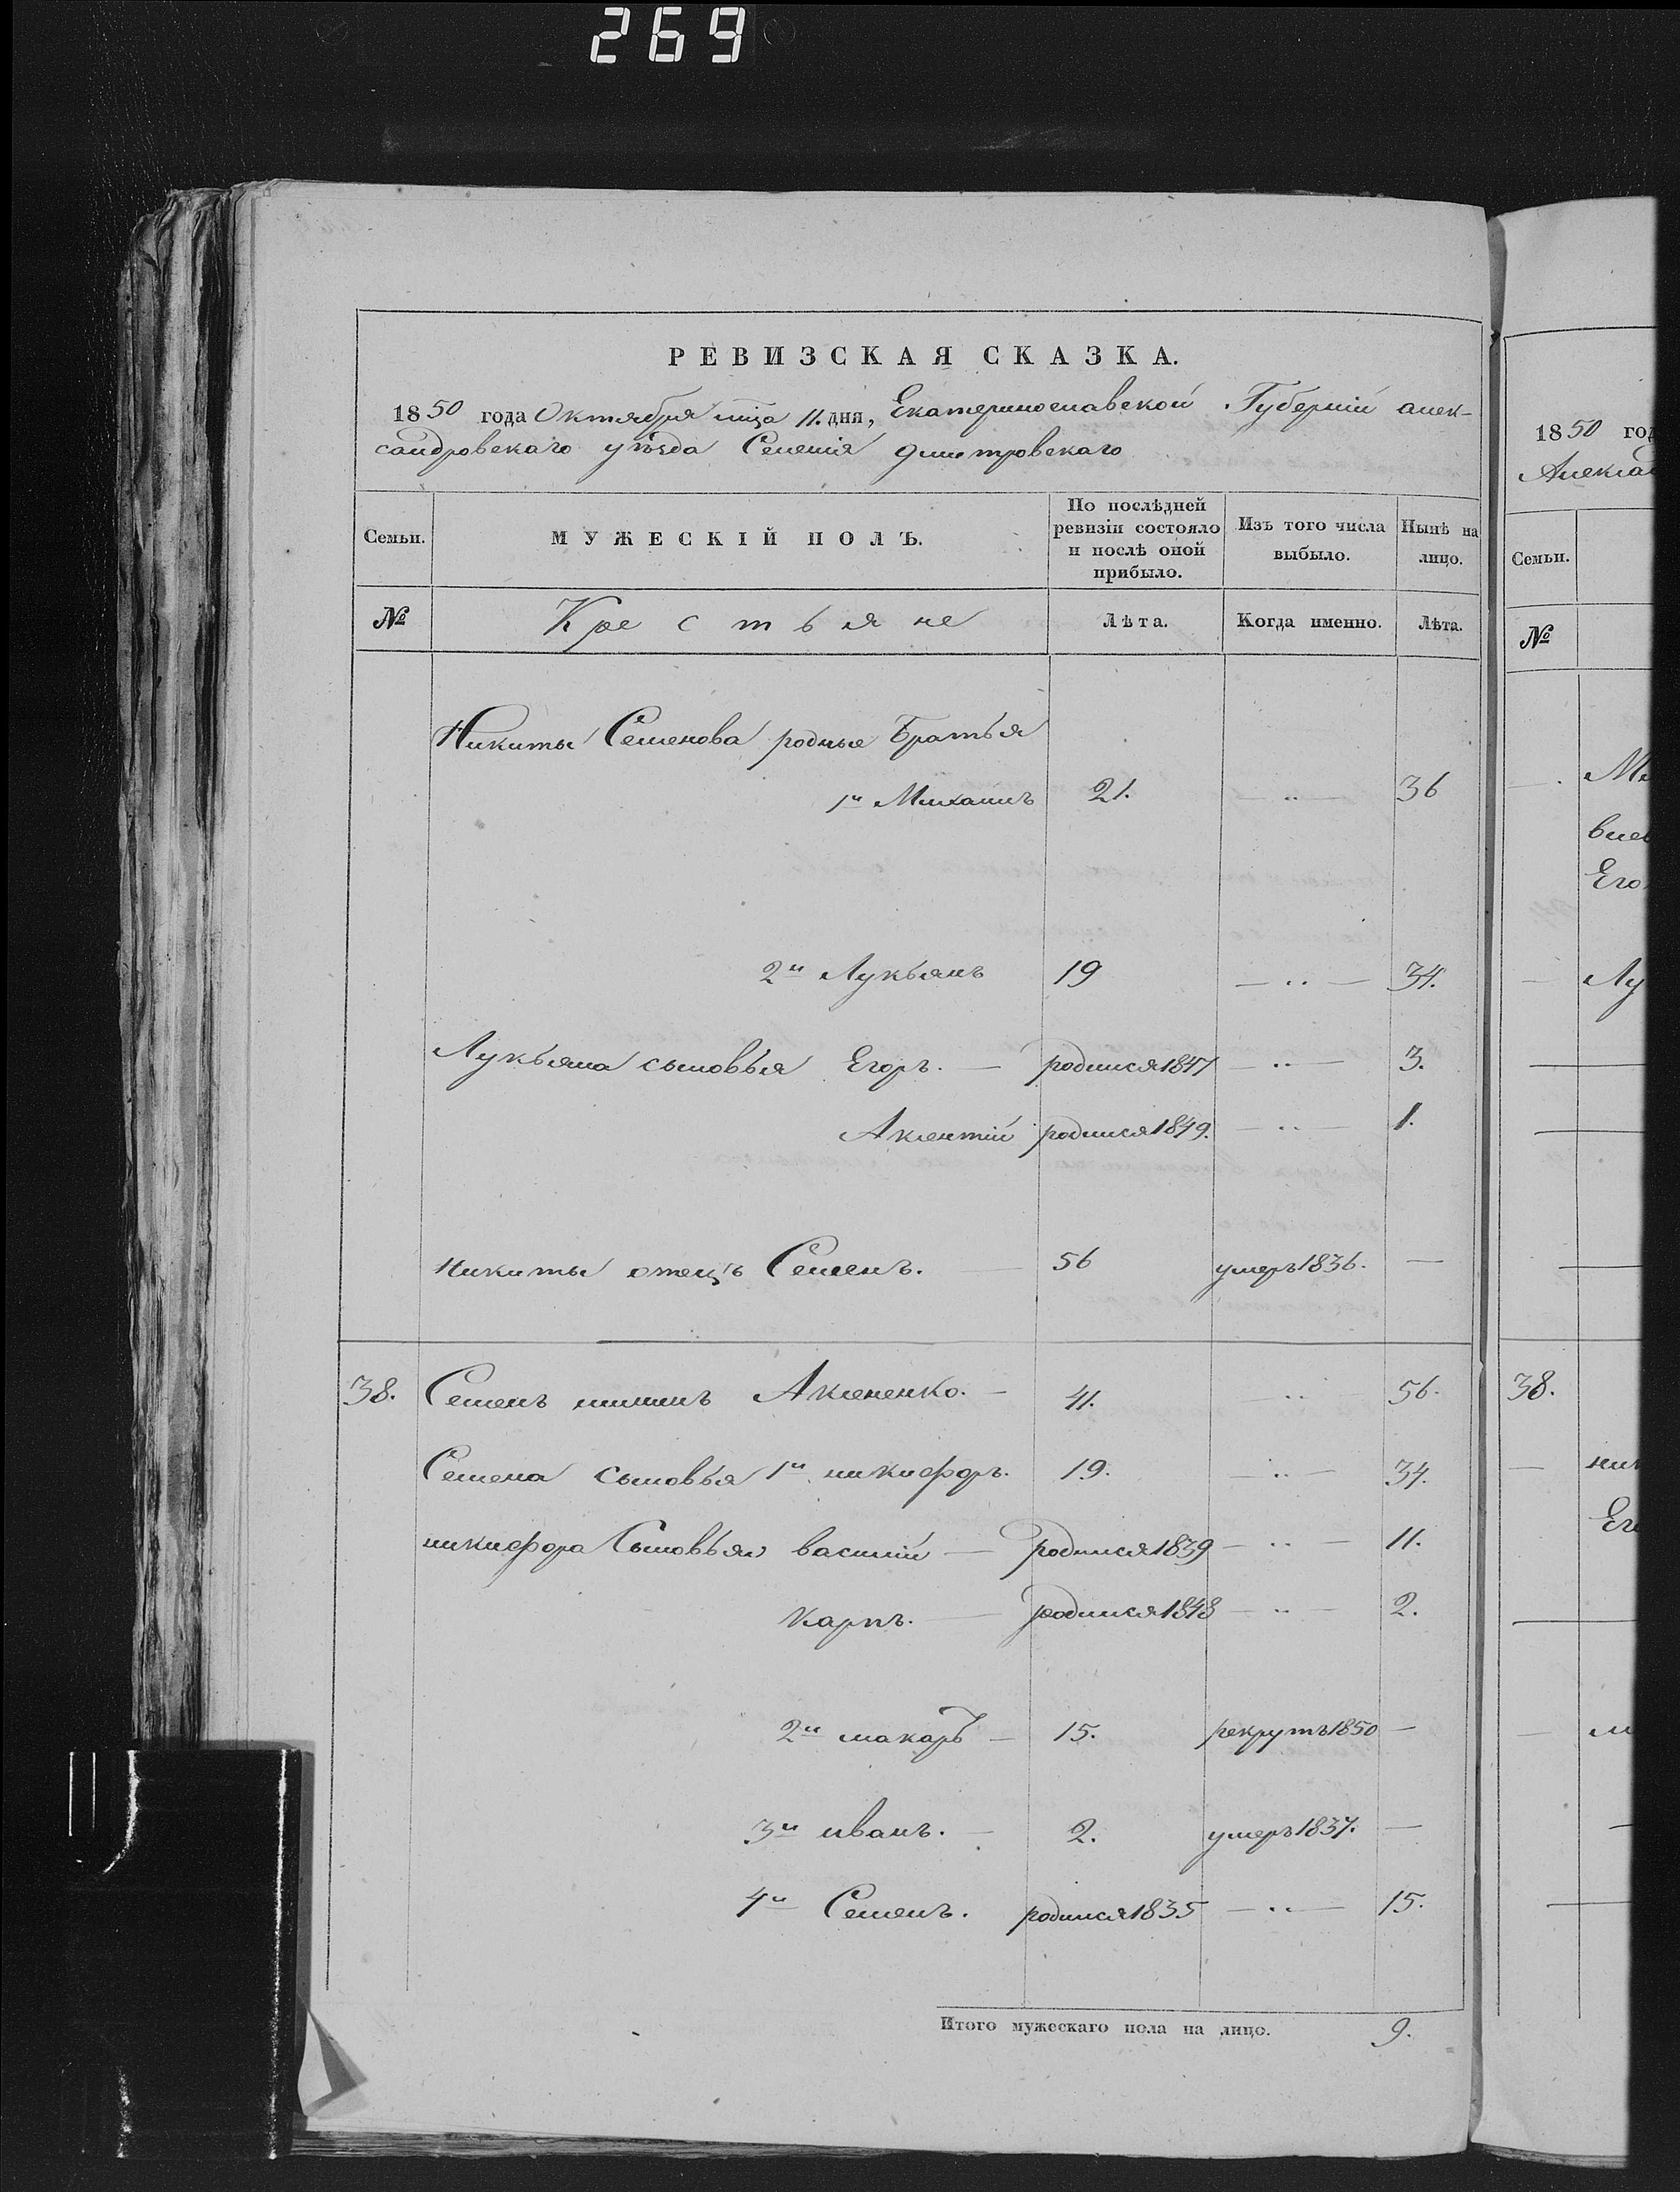 269
РЕВИЗСКАЯ СКАЗКА.
1850 года Октября мца 11. дня, Екатеринославской Губерніи алек-
сандровскаго уѣзда Селенія Дмитровскаго
Семьи. МУЖЕСКІЙ ПОЛЪ. По послѣдней ревизіи состояло и послѣ оной прибыло. Изъ того числа выбыло. Нынѣ на лицо.
№ Крестьяне Лѣта. Когда именно. Лѣта.
Никиты Семенова родные Братья
1й Михаилъ 21. — „ — 36
2й Лукьянъ 19 — „ — 34.
Лукьяна сыновья Егоръ. — родился 1847 — „ — 3.
Аксентій родился 1849. — „ — 1.
Никиты отецъ Семенъ. — 56 умеръ 1836. —
38. Семенъ Акененко. — 41. — „ 56.
Семена сыновья 1й никифоръ. 19. — „ — 34.
никифора Сыновья василій — родился 1839 — „ — 11.
карпъ. — родился 1848 — „ — 2.
2й макаръ — 15. рекрутъ 1850 —
3й иванъ. — 2. умеръ 1837. —
4й Семенъ. родился 1835 — „ — 15.
Итого мужескаго пола на лицо. 9.
1850 год
Алексан
Семьи.
№
Ми
Его
Лу
38.
ник